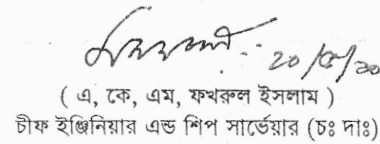 ২০/৫/১০
( এ, কে, এম, ফখরুল ইসলাম )
চীফ ইঞ্জিনিয়ার এন্ড শিপ সার্ভেয়ার (চঃ দাঃ)